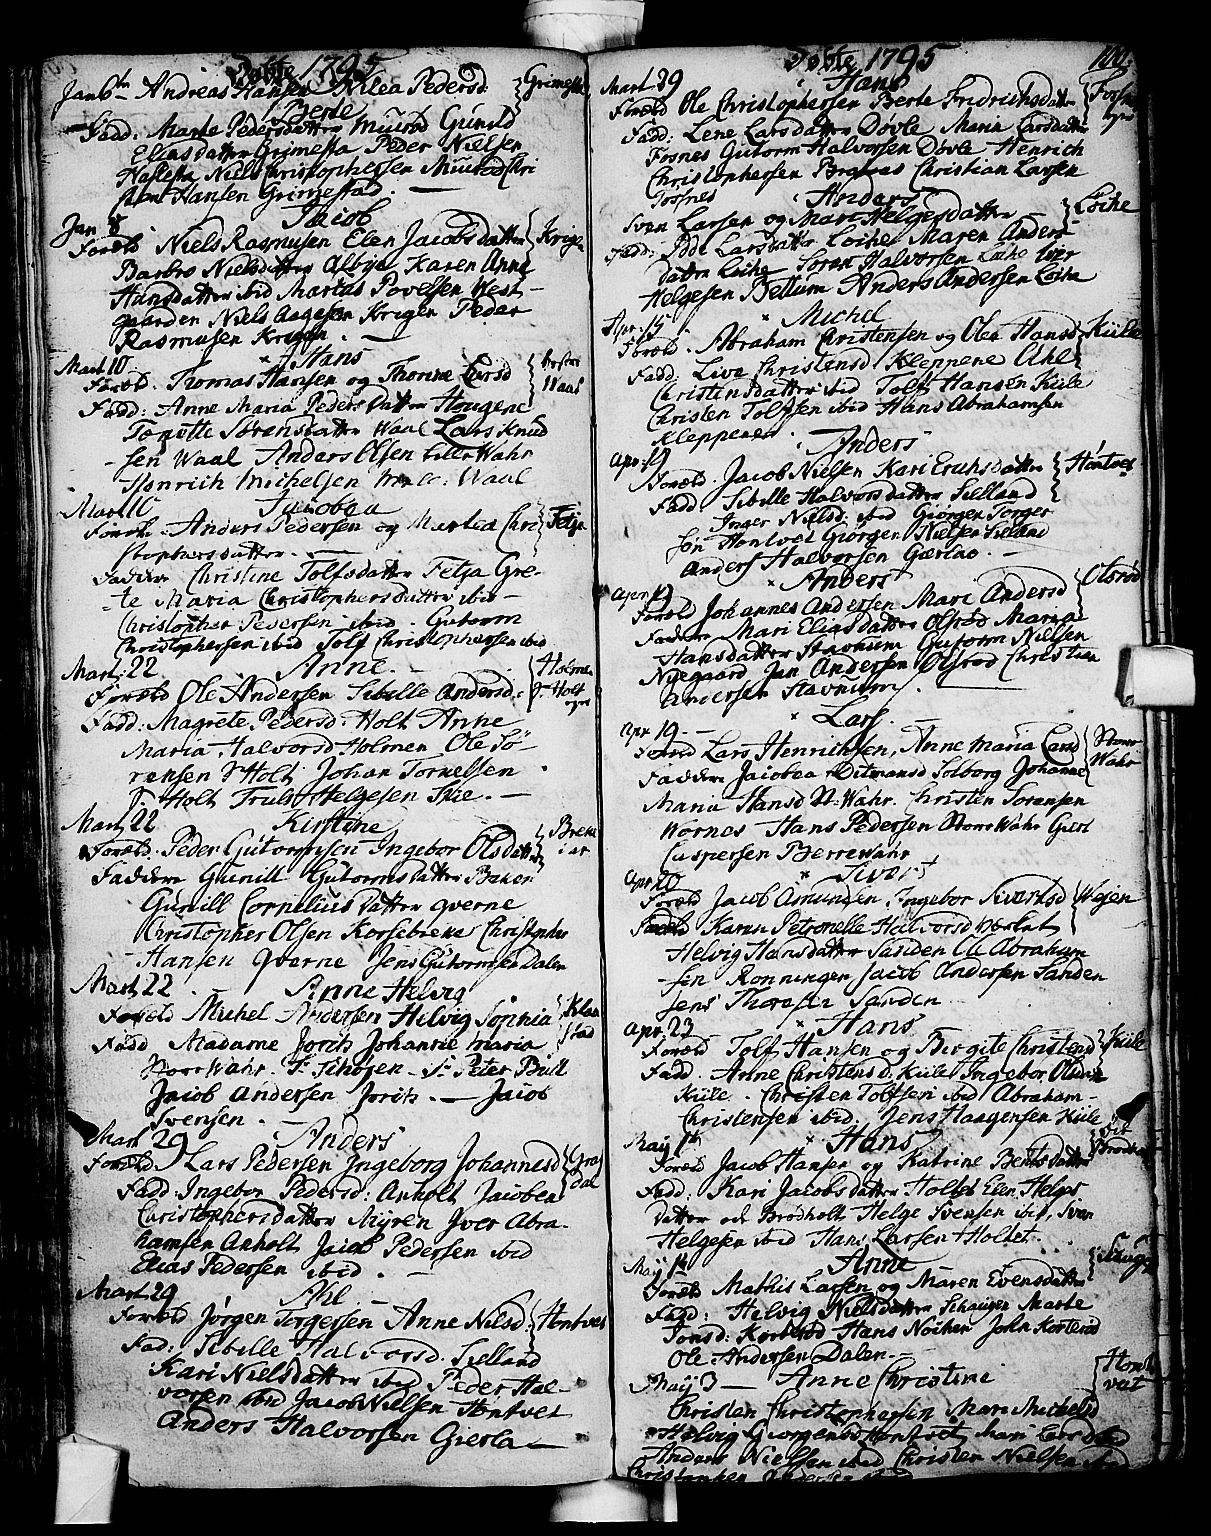 Døbte 1795
Jan 6te Andreas Hansen Nilea Pedersd: Grimesta
Berte
Fadd: Marte Pedersdatter Muurød Gunild
Eliasdatter Grimesta Peder Nielsen
Haslesta Niels Christophersen Muurød Chri
Hansen Grimestad. —
Jacob
Jan 8
Foreld Niels Rasmusen Elen Jacobsdatter Krigen
Barbro Nielsdatter Albrie Karen Anne
Hansdatter ibid Martas Povelsen West-
gaarden Niels Aagesen Krigen Peder
Rasmusen Krigen. —
Mart 10 Hans
Foreld. Thomas Hansen og Thonne Larsd Waal
Fadd: Anne Maria Peders Datter Hougene
Tonette Sørensdatter Waal Lars Knud
-sen Waal Anders Olsen Lille Wahr
Henrich Michelsen Waal
Mart 16 Jacobea
Foreld. Anders Pedersen og Martea Chri Fetja
stophersdatter. —
Faddere Christine Tolfsdatter Fetja Gre-
-te Maria Christophersdatter ibid-
Christopher Pedersen ibid. Gutorm
Christophersen ibid Tolf Christophersen ibid
Mart: 22 Anne. Holmen
Foreld Ole Andersen Sibille Andersd: Holt
Fadd: Magrete Pedersd: Holt Anne
Maria Halvorsd Holmen Ole Sø-
rensen Holt Johan Tornelsen
Holt Truls Helgesen Skie. —
Mart 22 Kirstine Breke
Foreld. Peder Gutormsen Ingebor Olsdatter
Faddere Gunill Gutormsdatter Breken
Gunill Cornelius datter Qverne
Christopher Olsen Korsebreke Christopher
Hansen Qverne Jens Gutormsen Dalen
Mart 22 Anne Helvig
Foreld Michel Andersen Helvig Sophia Klaa
Fadd Madame Jorits Johanne Maria stad
Wahr. Sr Schøjen - Sr Peter Brill
Jacob Andersen Jorits. — Jacob
Svensen. —
Mart 29 Anders
Foreld. Lars Pedersen Ingeborg Johannesd
Fadd: Ingebor Pedersd: Anholt Jacobea dal
Christophersdatter Myren Iver Abra-
hamsen Anholt Jacob Pedersen ibid
Elias Pedersen ibid. —
Mart 29
Foreld Jørgen Torgersen Anne Nilsd: Hontvet
Fad: Sibille Halvorsd. Sielland
Kari Nielsdatter ibid Peder Hal-
vorsen ibid Jacob Nielsen Hontvet
Anders Halvorsen Gierla —
Døbte 1795
Mart 29 Hans
Foreld Ole Christophersen Berte Fridrichsdatter Fosnes
Fadd: Lene Larsdatter Døvle Maria Larsdatter
Fosnes Gutorm Halvorsen Døvle Henrich
Christophersen Bragnes Christian Larsen
Fosnes Anders
Sven Larsen og Mari Helgesdatter Loike
Fadd: Larsdatter Loike Maren Anders
datter Loike Soren Halvorsen Loike Iver
Helgesen Bettum Anders Andersen Loike
Apr: 15 Michel
Foreld. Abraham Christensen og Olea Hansd Küile
Fadd. Live Christensd Kleppene
Christensdatter ibid Tolf Hansen Küile
Christen Tolfsen ibid Hans Abrahamsen
Kleppene.
Apr: 19 Anders
Foreld. Jacob Nielsen Kari Erichsdatter Hontvet
Fadd Sibille Halvorsdatter Sielland
Inger Nielsd. ibid Giorgen Torger
sen Hontvet Giørgen Nielsen Sieland
Anders Halvorsen Gierlao. —
Anders
Apr. 19 Foreld Johannes Andersen Mari Andersd Olsrød
Faddere Mari Eliasdatter Olsrød Maria
Hansdatter Stavnum Gutorm Nielsen
Nyegaard Jan Andersen Olsrød Christian
Andersen Stavnum.
Apr 19 — Lars
Foreld Lars Henrichsen, Anne Maria Larsd Store
Faddere Jacobea Ditmansd Solborg Johanne Wahr
Maria Hansd N: Wahr. Christen Sorensen
Wornes Hans Pedersen Store Wahr
Caspersen Bierre Wahr
Apr 20 Siver
Foreld Jacob Asmunsen. Ingebor Sivertsd Wejen
Karen Petronelle Halvorsd
Helvig Hansdatter Sanden Abraham
-sen Ronningen Jacob Andersen Sanden
Jens Thoresen Sanden
Apr. 23 Hans
Foreld Tolf Hansen og Birgite Christensd Küile
Fadd. Anne Christensd. Küile Ingebor Olsdatter
Küile. Christen Tolfsen ibid Abraham-
Christensen ibid. Jens Haagensen Küile
May 1te Hans
Foreld Jacob Hansen og Katrine Bentsdatter Brødholt
Fadd: Kari Jacobsdatter Holtet Elen Helges
datter Brødholt Helge Svensen ibid, Sven
Helgesen ibid Hans Larsen Holtet.
May 1te Anne
Foreld Mathis Larsen og Maren Evensdatter
Fadd: Helvig Nielsdatter Schaugen Marte
Jonsd: Korterød Hans Noiken John Korterød
Ole Andersen Dalen. —
May 3 — Anne Christine Hont
vet
Christen Christophersen Mari Michelsd
Helvig Georgensd Hontvet Mari Larsd
Anders Nielsen ibid Christen Nielsen ibid
Christopher Andersen